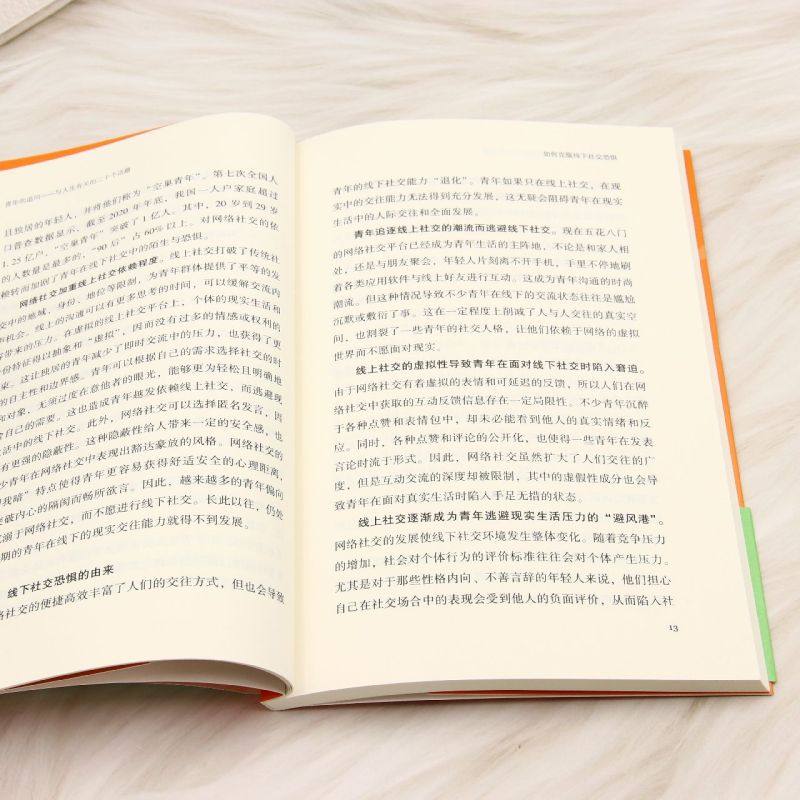 青年的追问——与人生有关的二十个话题
且独居的年轻人，并将他们称为“空巢青年”。第七次全国人
口普查数据显示，截至 2020 年年底，我国一人户家庭超过
1.25 亿户，“空巢青年”突破了 1 亿人。其中，20 岁到 29 岁
的人数量是最多的，“90 后”占 60%以上。对网络社交的依
赖转而加剧了青年在线下社交中的陌生与恐惧。
网络社交加重线上社交依赖程度。线上社交打破了传统社
交中的地域、身份、地位等限制，为青年群体提供了平等的发
机会。线上的沟通可以有更多思考的时间，可以缓解交流内
容带来的压力。在虚拟的线上社交平台上，个体的现实生活和
份特征得以抽象和“虚拟”，因而没有过多的情感或权利的
束。这让独居的青年减少了即时交流中的压力，也获得了更
的自主性和边界感。青年可以根据自己的需求选择社交的时
向对象，无须过度在意他者的眼光，能够更为轻松且明确地
自己的需要。这也造成青年越发依赖线上社交，而逃避现
活中的线下社交。此外，网络社交可以选择匿名发言，因
有更强的隐蔽性。这种隐蔽性给人带来一定的安全感，也
少青年在网络社交中表现出豁达豪放的风格。网络社交的
我暗”特点使得青年更容易获得舒适安全的心理距离，
突破内心的隔阂而畅所欲言。因此，越来越多的青年偏向
溺于网络社交，而不愿进行线下社交。长此以往，仍处
期的青年在线下的现实交往能力就得不到发展。
线下社交恐惧的由来
络社交的便捷高效丰富了人们的交往方式，但也会导致
如何克服线下社交恐惧
青年的线下社交能力“退化”。青年如果只在线上社交，在现
实中的交往能力无法得到充分发展，这无疑会阻碍青年在现实
生活中的人际交往和全面发展。
青年追逐线上社交的潮流而逃避线下社交。现在五花八门
的网络社交平台已经成为青年生活的主阵地，不论是和家人相
处，还是与朋友聚会，年轻人片刻离不开手机，手里不停地刷
着各类应用软件与线上好友进行互动。这成为青年沟通的时尚
潮流。但这种情况导致不少青年在线下的交流状态往往是尴尬
沉默或敷衍了事。这在一定程度上削减了人与人交往的真实空
间，也割裂了一些青年的社交人格，让他们依赖于网络的虚拟
世界而不愿面对现实。
线上社交的虚拟性导致青年在面对线下社交时陷入窘迫。
由于网络社交有着虚拟的表情和可延迟的反馈，所以人们在网
络社交中获取的互动反馈信息存在一定局限性。不少青年沉醉
于各种点赞和表情包中，却未必能看到他人的真实情绪和反
应。同时，各种点赞和评论的公开化，也使得一些青年在发表
言论时流于形式。因此，网络社交虽然扩大了人们交往的广
度，但是互动交流的深度却被限制，其中的虚假性成分也会导
致青年在面对真实生活时陷入手足无措的状态。
线上社交逐渐成为青年逃避现实生活压力的“避风港”。
网络社交的发展使线下社交环境发生整体变化。随着竞争压力
的增加，社会对个体行为的评价标准往往会对个体产生压力。
尤其是对于那些性格内向、不善言辞的年轻人来说，他们担心
自己在社交场合中的表现会受到他人的负面评价，从而陷入社
13